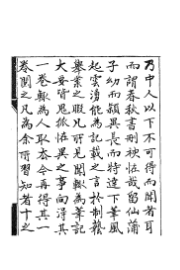 乃中人以下不可得而聞者耳
而謂春秋書刪秧怪哉留仙蒲
子幼而穎異長而特達下筆風
起雲湧能為記載之言於制藝
舉業之暇凡所見聞輒為筆記
大要皆鬼狐怪異之事向得其
一卷輒為人取去今再得其一
卷閱之凡為余所習知者十之